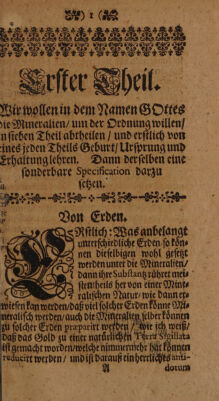 1
Erster Theil.
Wir wollen in dem Namen GOttes
die Mineralien / um der Ordnung willen /
in sieben Theil abtheilen / und erstlich von
eines jeden Theils Geburt / Ursprung und
Erhaltung lehren. Dann derselben eine
sonderbare Specification darzu
setzen.
Von Erden.
ERstlich: Was anbelangt
unterschiedliche Erden / so kön-
nen dieselbigen wohl gesetzt
werden unter die Mineralien /
dann ihr Substantz rühret mei-
stentheils her von einer Mine-
ralischen Natur / wie dann er-
wiesen kan werden / daß viel solcher Erden könne Mi-
neralisch werden / auch die Mineralien selber können
zu solcher Erden præparirt werden / wie ich weiß /
daß das Gold zu einer natürlichen Terra Sigillata
ist gemacht worden / welche nimmermehr hat können
reducirt werden / und ist daraus ein herrliches anti-
A dotum